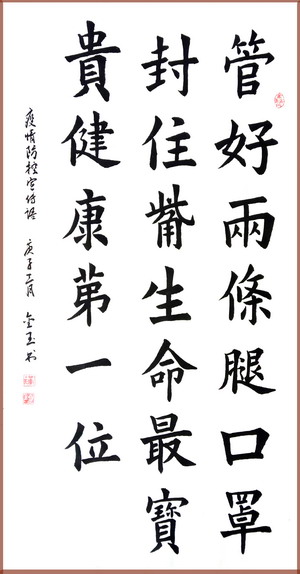 管好兩條腿口罩
封住觜生命最寶
貴健康苐一位
疫情防控宣传语 庚子 月 金玉书